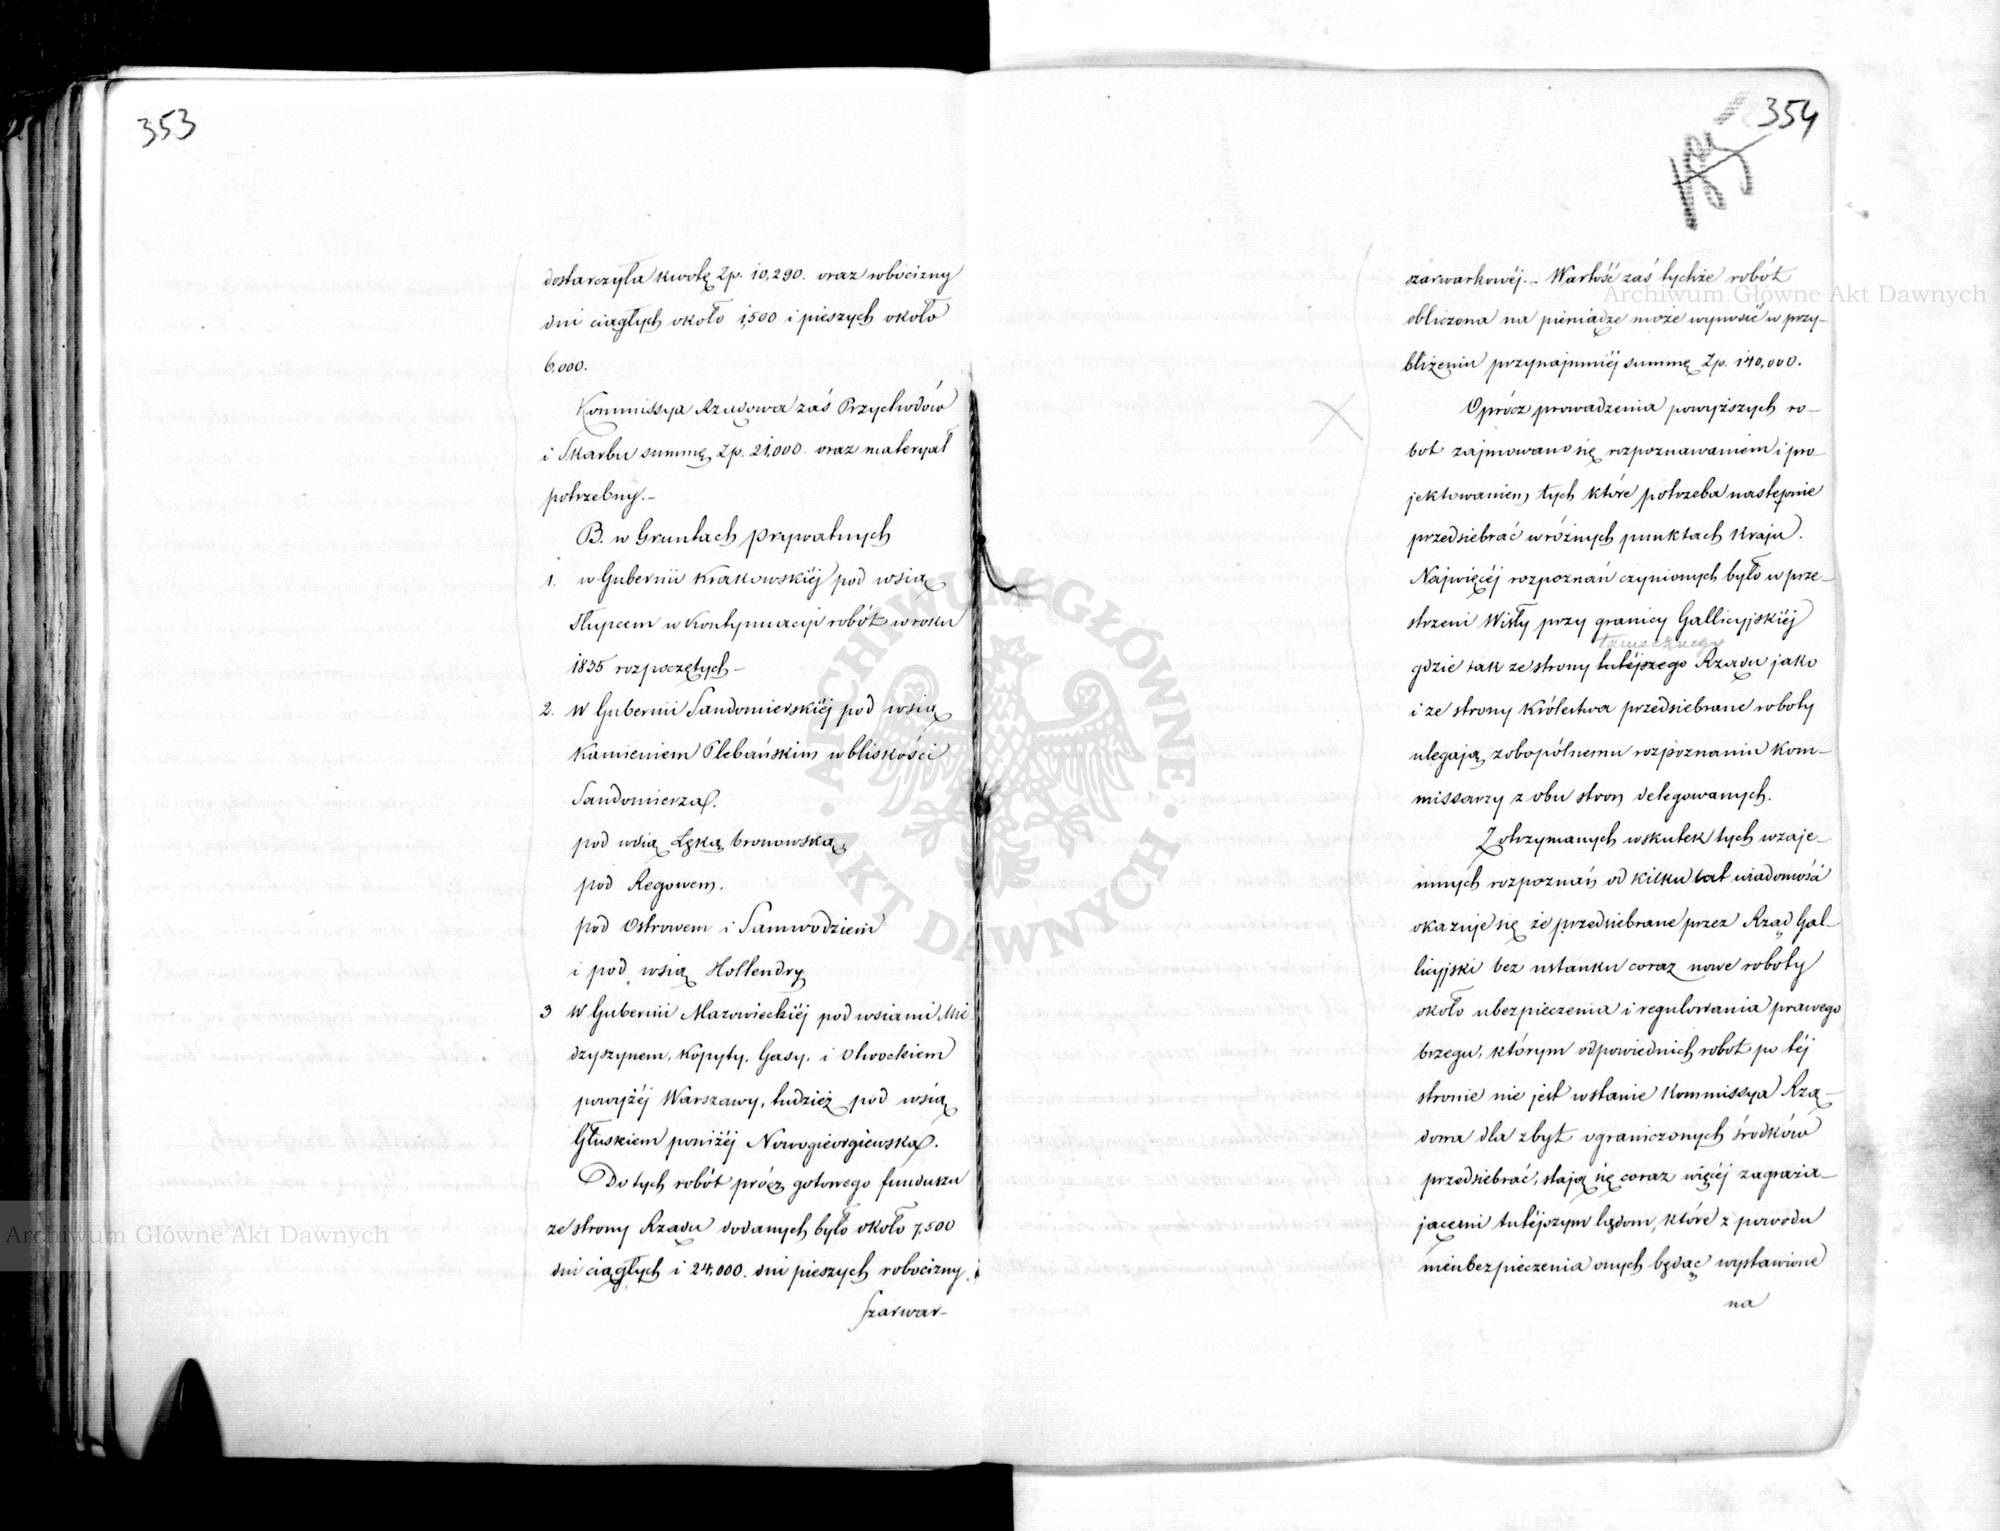 353
dostarczyła kwotę Zp. 10,290. oraz robocizny
dni ciągłych około 1,500 i pieszych około
6,000.
Kommissya Rządowa zaś Przychodów
i Skarbu summę Zp. 21,000. oraz materyał
potrzebny.-
B. w Gruntach prywatnych
1. w Gubernii Krakowskiéj pod wsią
Słupcem w kontynuacyi robót w roku
1835 rozpoczętych -
2. w Gubernii Sandomierskiéj pod wsią
Kamieniem Plebańskim w bliskości
Sandomierza.
pod wsią Łęką bronowską,
pod Regowem.
pod Ostrowem i Samwodziem
i pod wsią Hollendry
3 w Gubernii Mazowieckiéj pod wsiami Mie
dzyszynem, Kopyty, Gasy, i Otwockiem
powyżéj Warszawy, tudzież pod wsią
Głuskiem poniżéj Nowogieorgiewska.
Do tych robót prócz gotowego funduszu
ze strony Rządu dodanych było około 7,500
dni ciągłych i 24,000. dni pieszych robocizny
szarwar-
354
szarwarkowéj. - Wartość zaś tychże robót
obliczona na pieniądze może wynosić w przy-
bliżeniu przynajmniéj summę Zp. 140,000.
Oprócz prowadzenia powyższych ro-
bot zajmowano się rozpoznawaniem i pro-
jektowaniem tych które potrzeba następnie
przedsiebrać w różnych punktach Kraju.
Najwięcéj rozpoznań czynionych było w prze-
strzeni Wisły przy granicy Gallicyjskiéj
gdzie tak ze strony tutéjszego Rządu jako
i ze strony Królestwa przedsiebrane roboty
ulegają zobopólnemu rozpoznaniu Kom-
missarzy z obu stron delegowanych.
Z otrzymanych wskutek tych wzaje-
mnych rozpoznań od kilku lat wiadomości
okazuje się że przedsiebrane przez Rząd Gal-
licyjski bez ustanku coraz nowe roboty
około ubezpieczenia i regulowania prawego
brzegu, którym odpowiednich robot po téj
stronie nie jest wstanie Kommissya Rzą-
dowa dla zbyt ograniczonych środków
przedsiebrać, stają się coraz więcéj zagraża-
jącemi tutéjszym lądom, które z powodu
nieubezpieczenia onych będąc wystawione
na
Archiwum Główne Akt Dawnych
Archiwum Główne Akt Dawnych
ARCHIWUM GŁÓWNE · AKT DAWNYCH ·